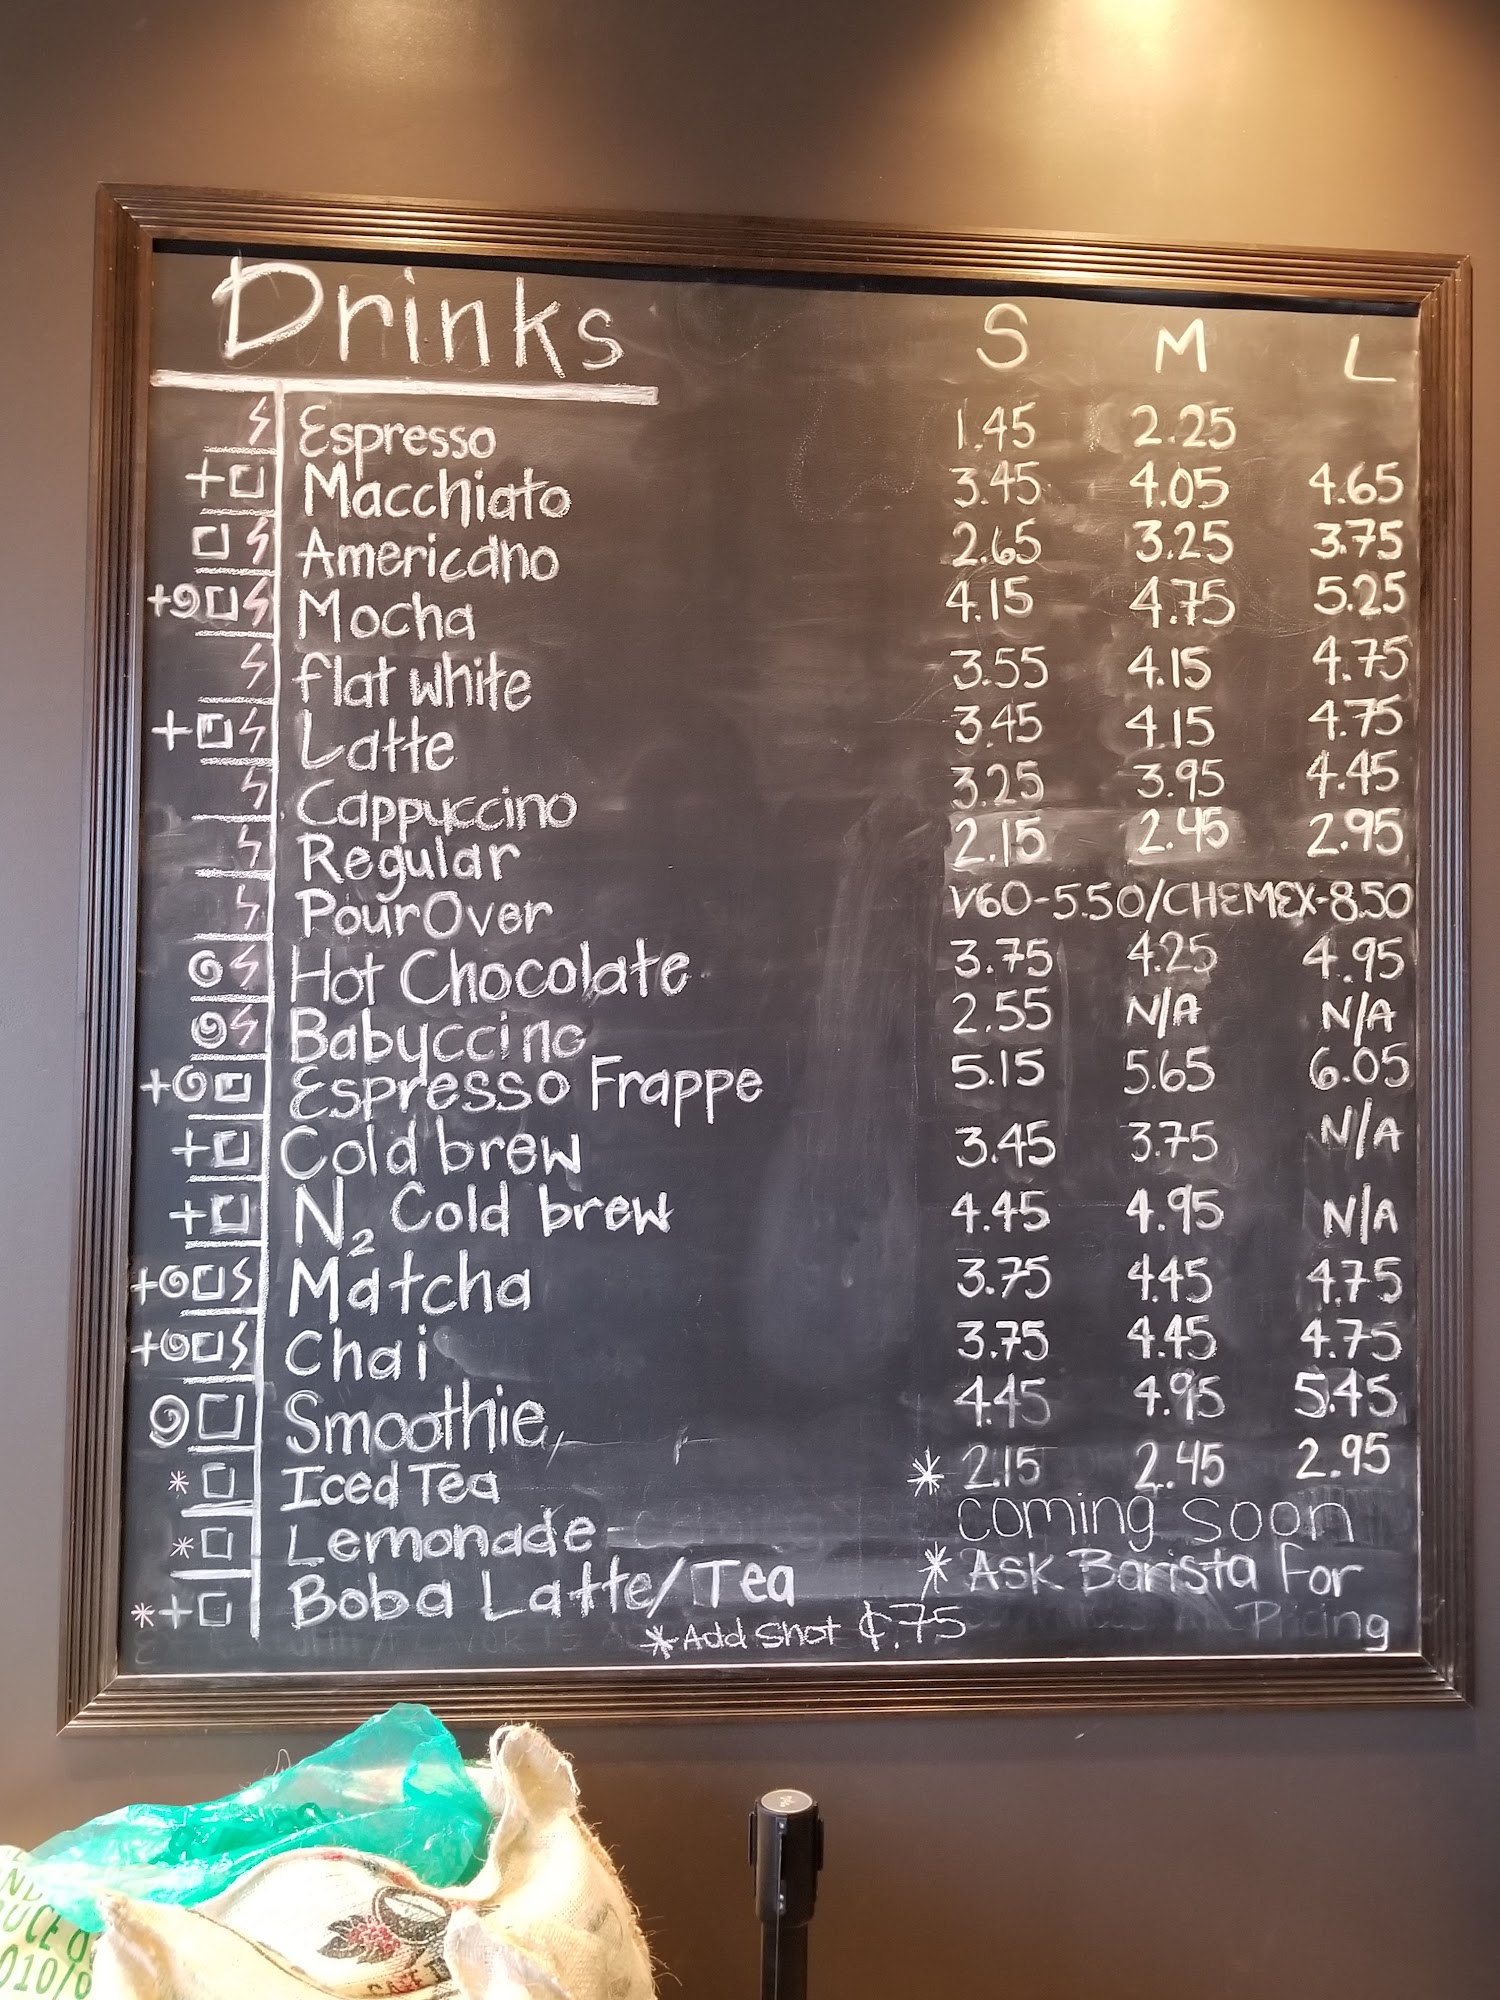 Drinks S M L
Espresso 1.45 2.25
Macchiato 3.45 4.05 4.65
Americano 2.65 3.25 3.75
Mocha 4.15 4.75 5.25
flat white 3.55 4.15 4.75
Latte 3.45 4.15 4.75
Cappuccino 3.25 3.95 4.45
Regular 2.15 2.45 2.95
PourOver V60-5.50/CHEMEX-8.50
Hot Chocolate 3.75 4.25 4.95
Babyccino 2.55 N/A N/A
Espresso Frappe 5.15 5.65 6.05
Cold brew 3.45 3.75 N/A
N₂ Cold brew 4.45 4.95 N/A
Matcha 3.75 4.45 4.75
Chai 3.75 4.45 4.75
Smoothie 4.45 4.95 5.45
* Iced Tea * 2.15 2.45 2.95
* Lemonade- coming soon
*+ Boba Latte/Tea * Ask Barista For
Pricing
* Add Shot ¢.75
010/
CAFE